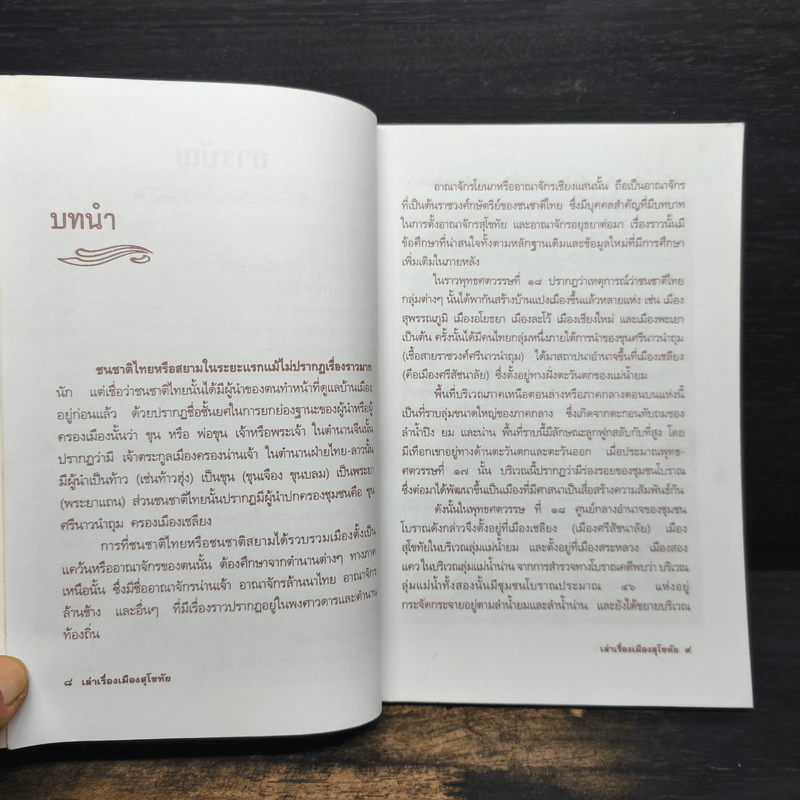 บทนำ
ชนชาติไทยหรือสยามในระยะแรกแม้ไม่ปรากฏเรื่องราวมาก
นัก แต่เชื่อว่าชนชาติไทยนั้นได้มีผู้นำของตนทำหน้าที่ดูแลบ้านเมือง
อยู่ก่อนแล้ว ด้วยปรากฏชื่อชั้นยศในการยกย่องฐานะของผู้นำหรือผู้
ครองเมืองนั้นว่า ขุน หรือ พ่อขุน เจ้าหรือพระเจ้า ในตำนานจีนนั้น
ปรากฏว่ามี เจ้าตระกูลเมืองครองน่านเจ้า ในตำนานฝ่ายไทย-ลาวนั้น
มีผู้นำเป็นท้าว (เช่นท้าวฮุ่ง) เป็นขุน (ขุนเจือง ขุนบลม) เป็นพระยา
(พระยาแถน) ส่วนชนชาติไทยนั้นปรากฏมีผู้นำปกครองชุมชนคือ ขุน
ศรีนาวนำถุม ครองเมืองเชลียง
การที่ชนชาติไทยหรือชนชาติสยามได้รวบรวมเมืองตั้งเป็น
แคว้นหรืออาณาจักรของตนนั้น ต้องศึกษาจากตำนานต่างๆ ทางภาค
เหนือนั้น ซึ่งมีชื่ออาณาจักรน่านเจ้า อาณาจักรล้านนาไทย อาณาจักร
ล้านช้าง และอื่นๆ ที่มีเรื่องราวปรากฏอยู่ในพงศาวดารและตำนาน
ท้องถิ่น
๘ เล่าเรื่องเมืองสุโขทัย
อาณาจักรโยนกหรืออาณาจักรเชียงแสนนั้น ถือเป็นอาณาจักร
ที่เป็นต้นราชวงศ์กษัตริย์ของชนชาติไทย ซึ่งมีบุคคลสำคัญที่มีบทบาท
ในการตั้งอาณาจักรสุโขทัย และอาณาจักรอยุธยาต่อมา เรื่องราวนั้นมี
ข้อศึกษาที่น่าสนใจทั้งตามหลักฐานเดิมและข้อมูลใหม่ที่มีการศึกษา
เพิ่มเติมในภายหลัง
ในราวพุทธศตวรรษที่ ๑๘ ปรากฏว่าเหตุการณ์ว่าชนชาติไทย
กลุ่มต่างๆ นั้นได้พากันสร้างบ้านแปงเมืองขึ้นแล้วหลายแห่ง เช่น เมือง
สุพรรณภูมิ เมืองอโยธยา เมืองละโว้ เมืองเชียงใหม่ และเมืองพะเยา
เป็นต้น ครั้งนั้นได้มีคนไทยกลุ่มหนึ่งภายใต้การนำของขุนศรีนาวนำถุม
(เชื้อสายราชวงศ์ศรีนาวนำถุม) ได้มาสถาปนาอำนาจขึ้นที่เมืองเชลียง
(คือเมืองศรีสัชนาลัย) ซึ่งตั้งอยู่ทางฝั่งตะวันตกของแม่น้ำยม
พื้นที่บริเวณภาคเหนือตอนล่างหรือภาคกลางตอนบนแห่งนี้
เป็นที่ราบลุ่มขนาดใหญ่ของภาคกลาง ซึ่งเกิดจากตะกอนทับถมของ
ลำน้ำปิง ยม และน่าน พื้นที่ราบนี้มีลักษณะลูกฟูกสลับกับที่สูง โดย
มีเทือกเขาอยู่ทางด้านตะวันตกและตะวันออก เมื่อประมาณพุทธ-
ศตวรรษที่ ๑๗ นั้น บริเวณนี้ปรากฏว่ามีร่องรอยของชุมชนโบราณ
ซึ่งต่อมาได้พัฒนาขึ้นเป็นเมืองที่มีศาสนาเป็นสื่อสร้างความสัมพันธ์กัน
ดังนั้นในพุทธศตวรรษ ที่ ๑๘ ศูนย์กลางอำนาจของชุมชน
โบราณดังกล่าวจึงตั้งอยู่ที่เมืองเชลียง (เมืองศรีสัชนาลัย) เมือง
สุโขทัยในบริเวณลุ่มแม่น้ำยม และตั้งอยู่ที่เมืองสระหลวง เมืองสอง
แคว ในบริเวณลุ่มแม่น้ำน่าน จากการสำรวจทางโบราณคดีพบว่า บริเวณ
ลุ่มแม่น้ำทั้งสองนั้นมีชุมชนโบราณประมาณ ๔๖ แห่งอยู่
กระจัดกระจายอยู่ตามลำน้ำยมและลำน้ำน่าน และยังได้ขยายบริเวณ
เล่าเรื่องเมืองสุโขทัย ๙